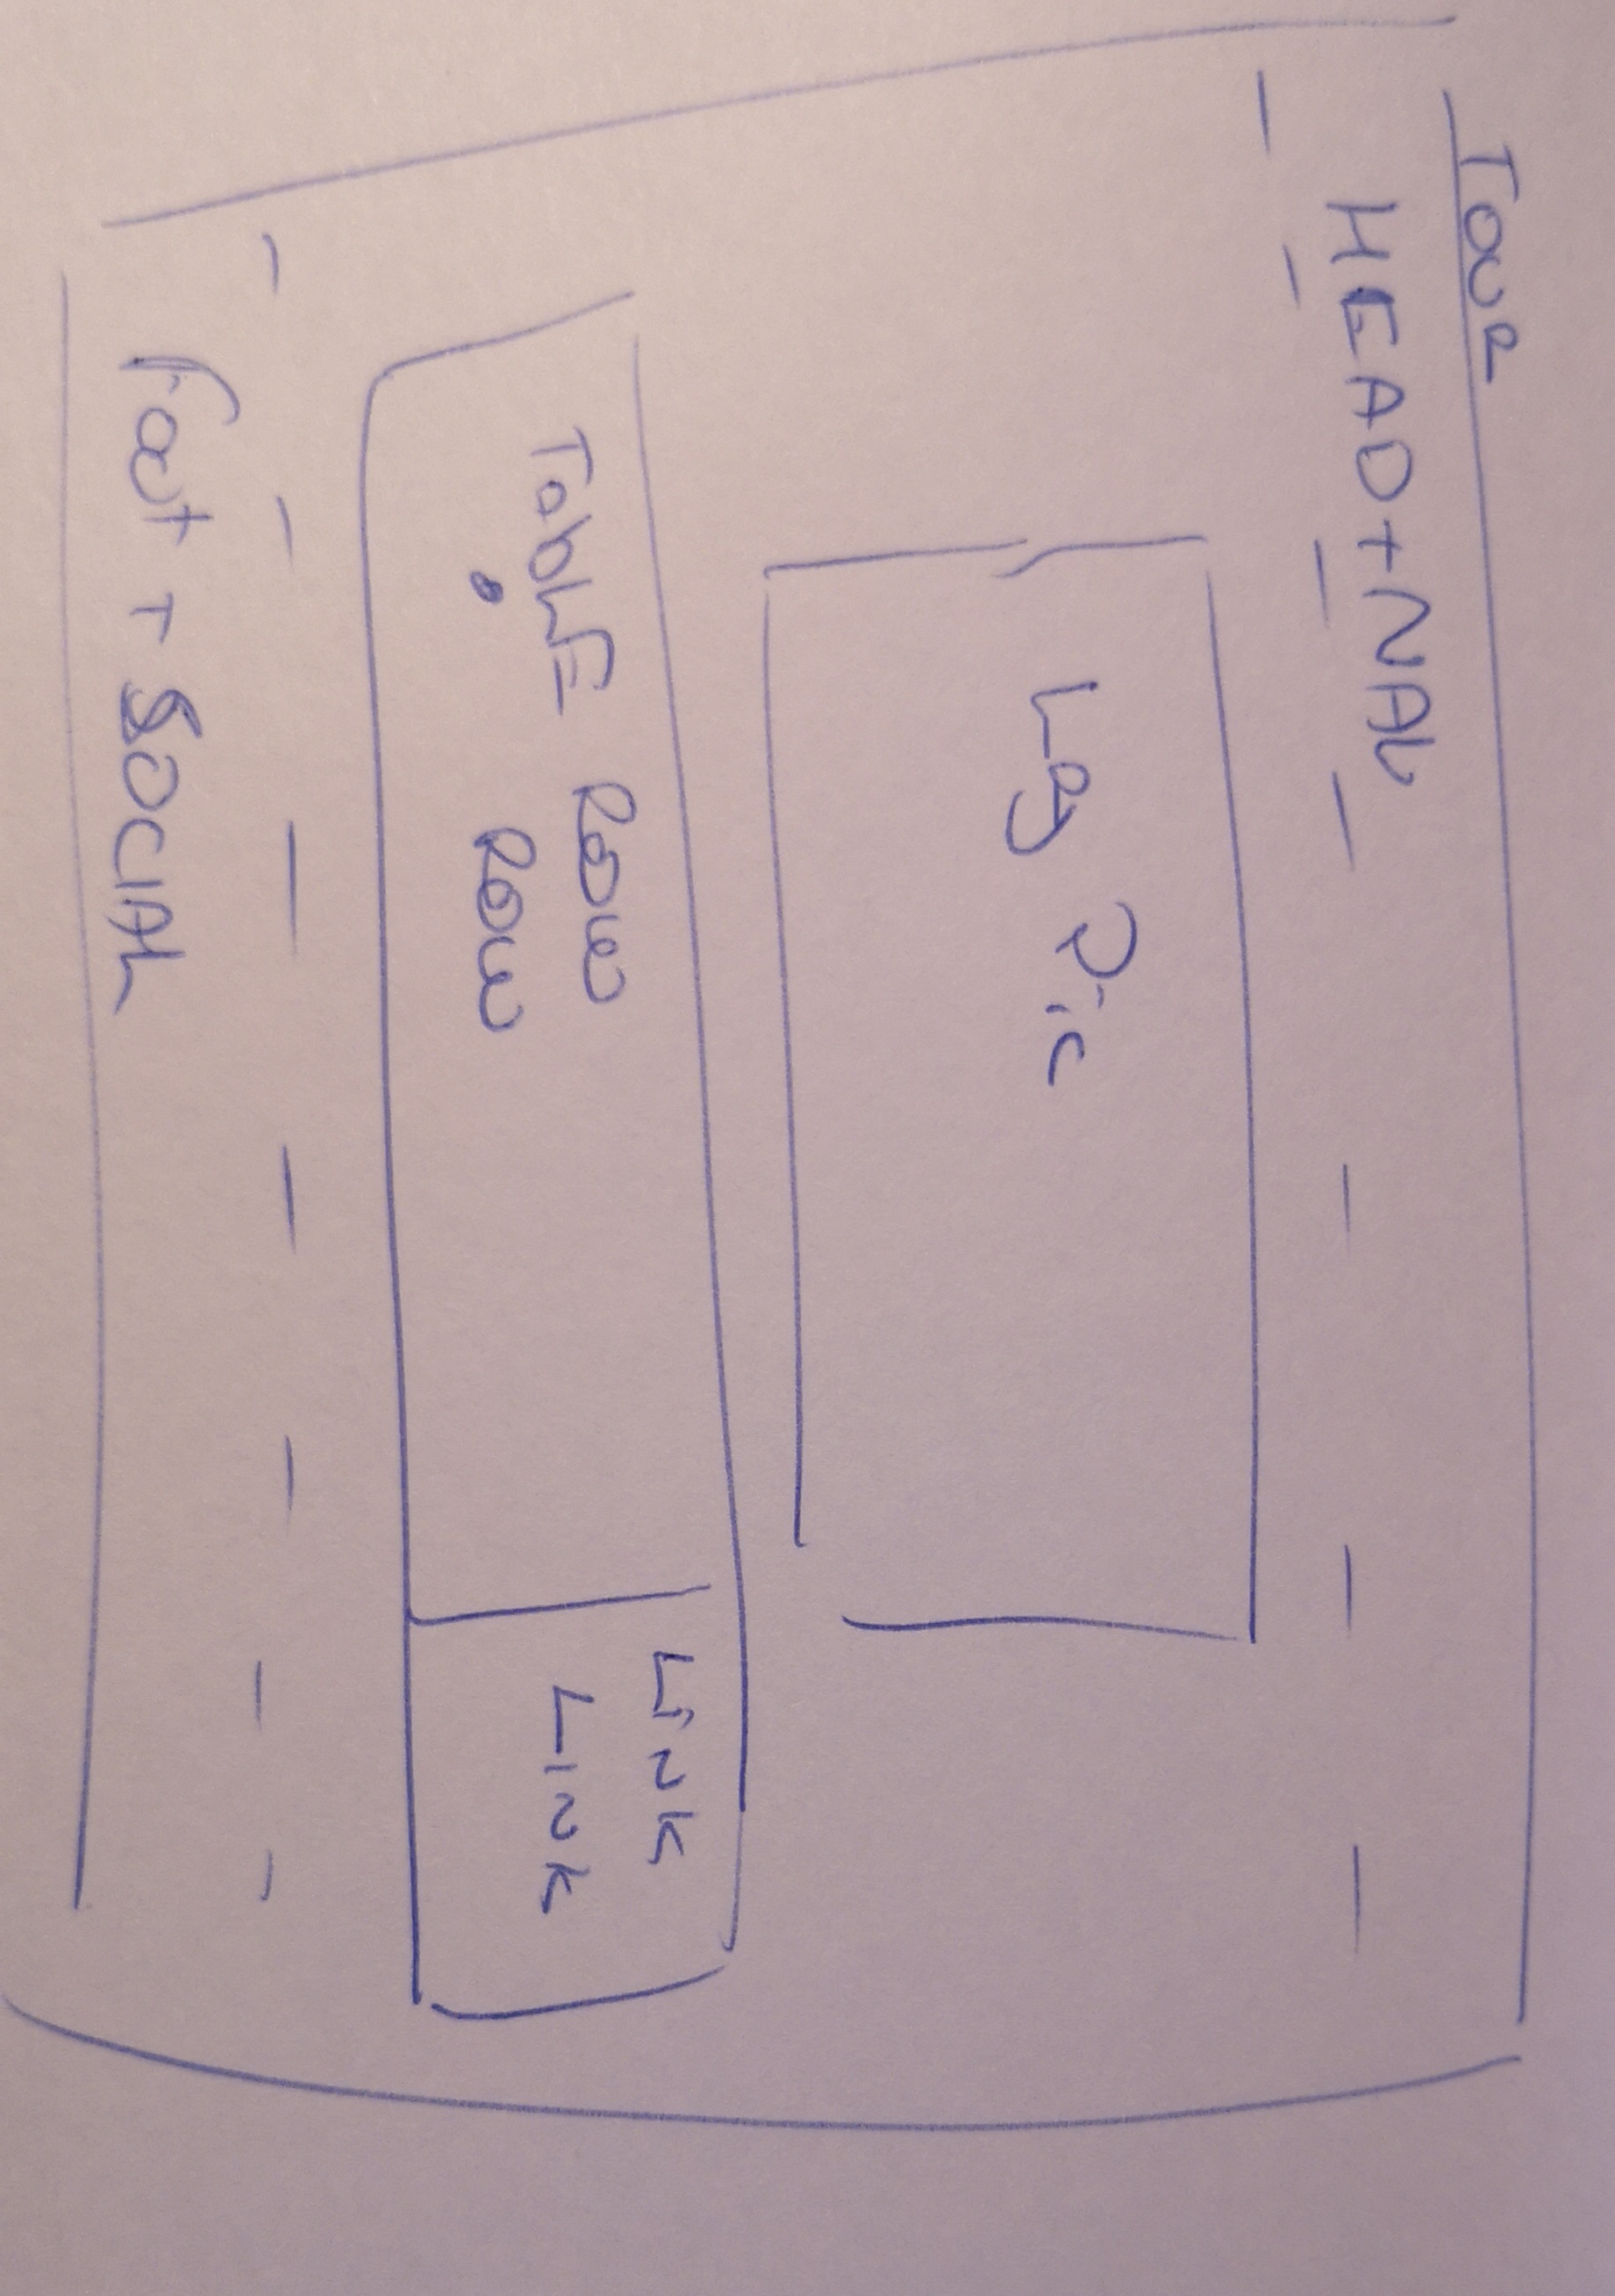 Tour
HEAD + NAV
Lrg Pic
Table Row
Row
Link
Link
Foot + SOCIAL